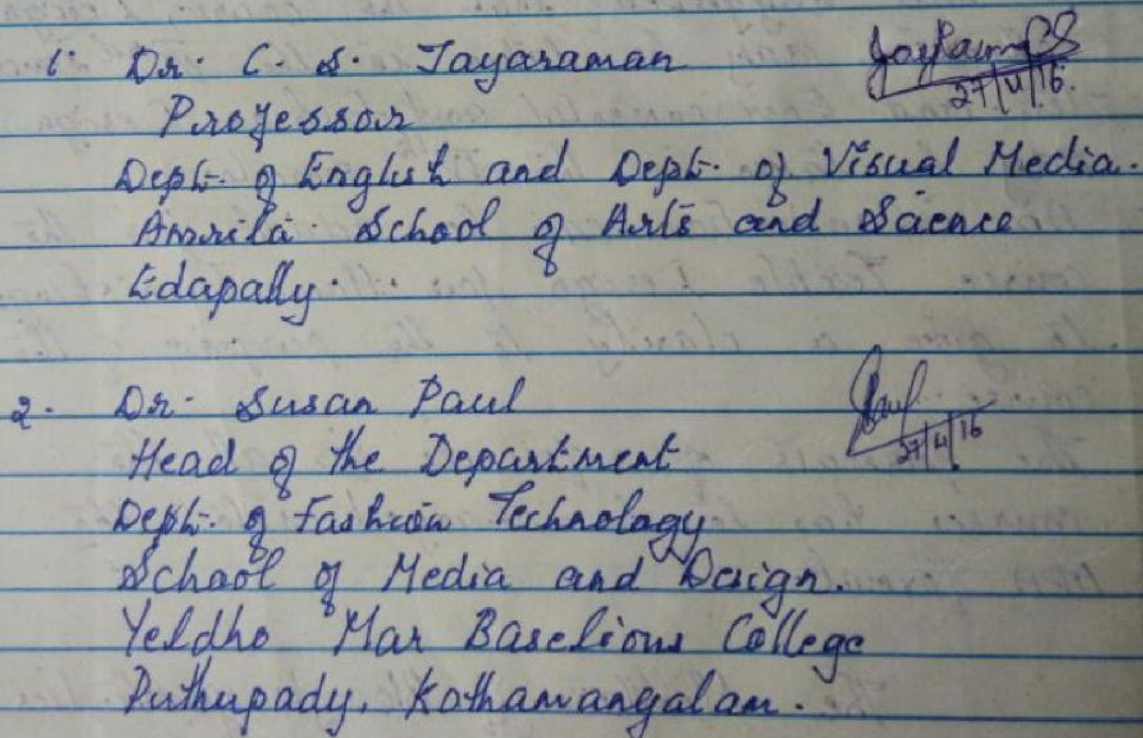 1. Dr. C. S. Jayaraman
27/4/16.
Professor
Dept. of English and Dept. of Visual Media.
Amrita School of Arts and Science
Edapally.
2. Dr. Susan Paul
Paul
27/4/16
Head of the Department
Dept. of Fashion Technology
School of Media and Design.
Yeldho Mar Baselious College
Puthupady, Kothamangalam.